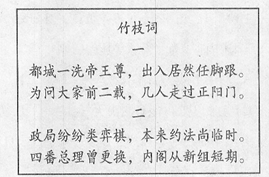 竹枝词
一
都城一洗帝王尊，出入居然任脚跟。
为问大家前二载，几人走过正阳门。
二
政局纷纷类弈棋，本来约法尚临时。
四番总理曾更换，内阁从新组短期。